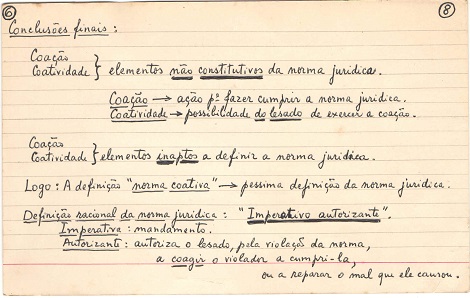 6 8
Conclusões finais:
Coação
Coatividade } elementos não constitutivos da norma jurídica.
Coação → ação pª fazer cumprir a norma jurídica.
Coatividade → possibilidade do lesado de exercer a coação.
Coação
Coatividade } elementos inaptos a definir a norma jurídica.
Logo: A definição "norma coativa" → pessima definição da norma jurídica.
Definição racional da norma jurídica: "Imperativo autorizante".
Imperativa: mandamento.
Autorizante: autoriza o lesado, pela violação da norma,
a coagir o violador a cumpri-la,
ou a reparar o mal que ele causou.